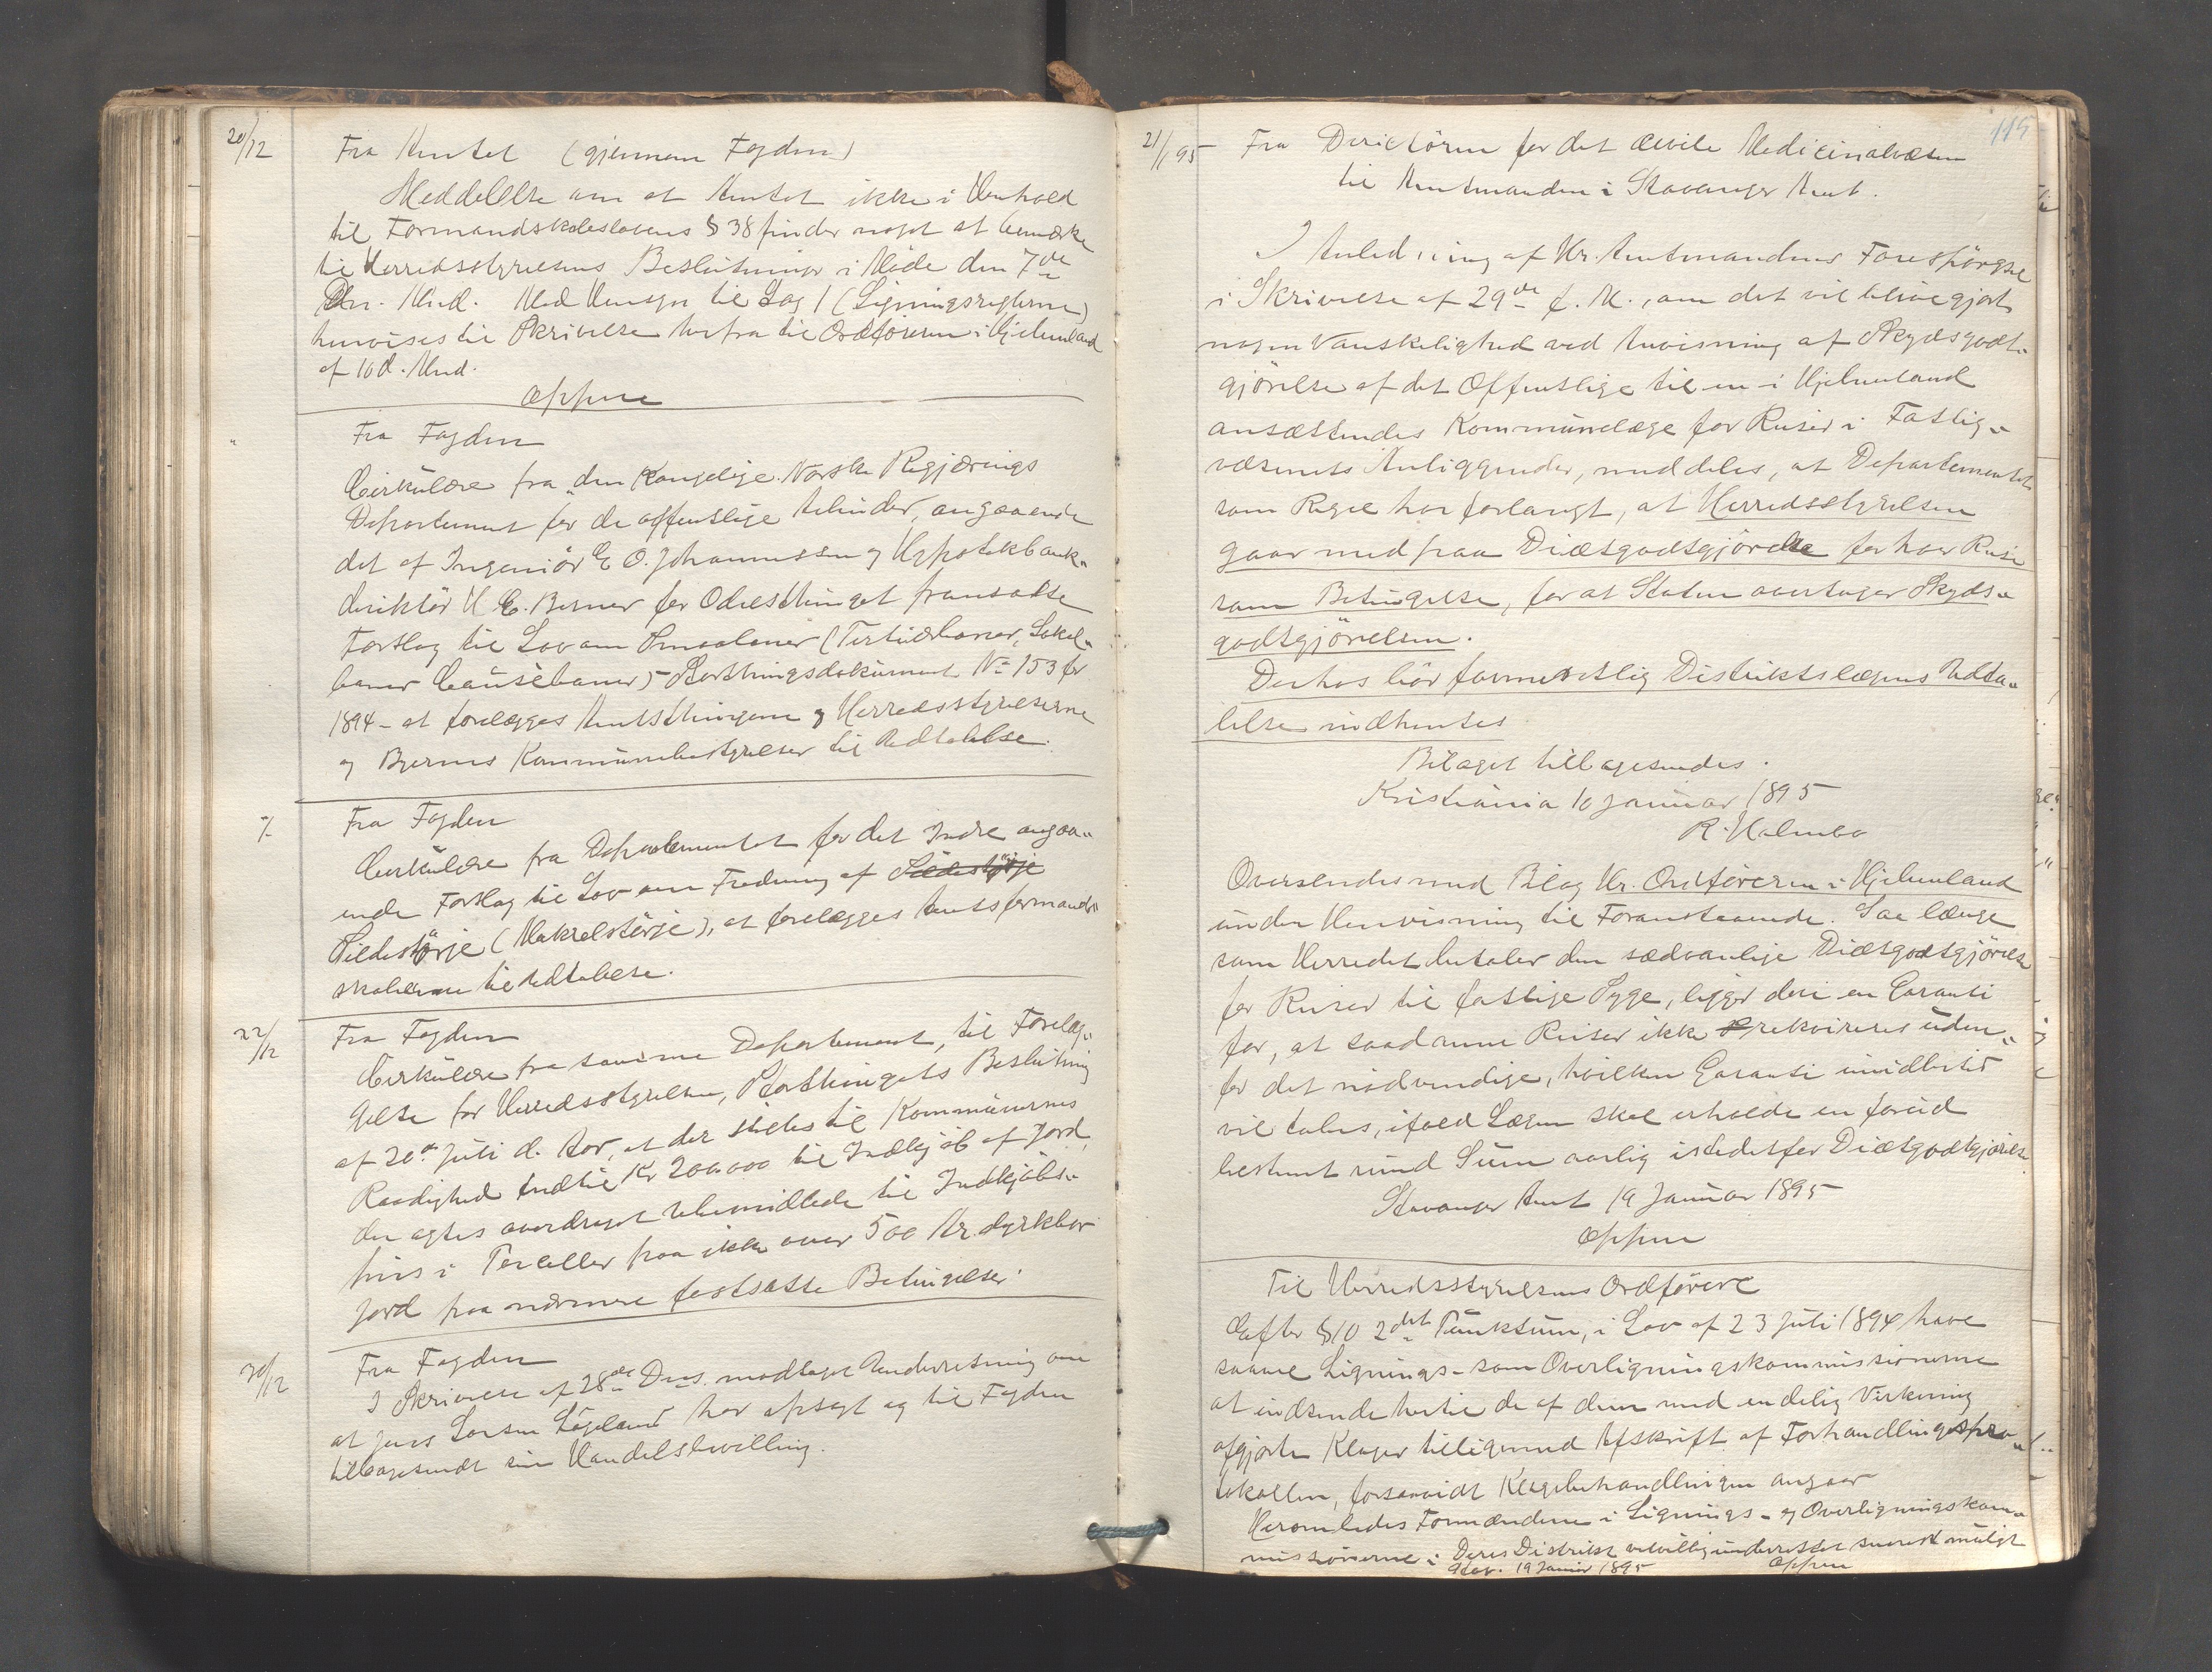 20/12
Fra Amtet (gjennem Fogden)
Meddelelse om at Amtet ikke i Henhold
til Formandskabslovens § 38 finder noget at bemærke
til Herredsstyrelsens Beslutninger i Møde den 7de
Dn. Mnd. Med Hensyn til Sag 1 (Ligningsreglerne)
henvises til Skrivelse herfra til Ordføreren i Hjelmeland
af 10 d. Mnd.
Oppen
"
Fra Fogden
Cirkulære fra „den Kongelige Norske Regjærings
Departement for de offentlige Arbeider, angaaende
det af Ingeniør E O. Johannessen og Hypotekbank-
direktør H E. Berner for Odelsthinget fremsatte
Forslag til Lov om Smaabaner (Tertiærbaner, Lokal-
baner Causebaner) - Storthingsdokument No 153 for
1894 - at forelægges Amtsthingene og Herredsstyrelserne
og Byernes Kommunebestyrelser til Udtalelse.
Fra Fogden
Cirkulære fra Departementet for det Indre angaa-
ende Forslag til Lov om Fredning af Sildestørje
Sildestørje (Makrelstørje), at forelægges Amtsformand-
skaberne til Udtalelse.
22/12
Fra Fogden
Cirkulære fra samme Departement, til Forelæg-
gelse for Herredsstyrelsen, Storthingets Beslutning
af 20de Juli d. Aar, at der stilles til Kommunernes
Raadighed indtil Kr 200.000 til Indkjøb af Jord,
der agtes overdraget ubemidlede til Indkjøbs-
pris i Parceller paa ikke over 500 Kr. dyrkbar
Jord paa nærmere fastsatte Betingelser.
30/12
Fra Fogden
I Skrivelse af 28de Ds. modtaget Underretning om
at Jens Larsen har opsagt og til Fogden
tilbagesendt sin Handelsbevilling.
115
21/1 95
Fra Direktøren for det civile Medicinalvæsen
til Amtmanden i Stavanger Amt.
I Anledning af Hr. Amtmandens Forespørgsel
i Skrivelse af 29de f. M., om det vil blive gjort
nogen Vanskelighed ved Anvisning af Skydsgodt-
gjørelse af det Offentlige til en i Hjelmeland
ansættendes Kommunelæge for Reiser i Fattig-
væsenets Anliggender, meddeles, at Departementet
som Regel har forlangt, at Herredsstyrelsen
gaar med paa Diætgodtgjørelse for hver Reise
som Betingelse, for at Staten overtager Skyds-
godtgjørelsen.
Derhos bør formentlig Distriktslægens Udta-
lelse indhentes.
Bilaget tilbagesendes.
Kristiania 10 Januar 1895
R. Holmbo
Oversendes med Bilag Hr. Ordføreren i Hjelmeland
under Henvisning til Foranstaaende. Saa længe
som Herredet betaler den sædvanlige Diætgodtgjørelse
for Reiser til fattige Syge, ligger deri en Garanti
for, at saadanne Reiser ikke rekvireres uden-
for det nødvendige, hvilken Garanti imidlertid
vil tabes, ifald Lægen skal erholde en forud
bestemt rund Sum aarlig istedetfor Diætgodtgjørelse.
Stavanger Amt 19 Januar 1895
Oppen
Til Herredsstyrelsens Ordfører
Efter § 10 2det Punktum, i Lov af 23 Juli 1894 have
saavel Lignings- som Overligningskommissionerne
at indsende hertil de af dem med endelig Virkning
afgjorte Klager tilligemed Afskrift af Forhandlingspro-
tokollen, forsaavidt Klagebehandlingen angaar
Herom bedes Formændene i Lignings- og Overligningskom-
missionerne i Deres Distrikt velvillig underrettet snarest muligt
Stav. 19 Januar 1895 Oppen